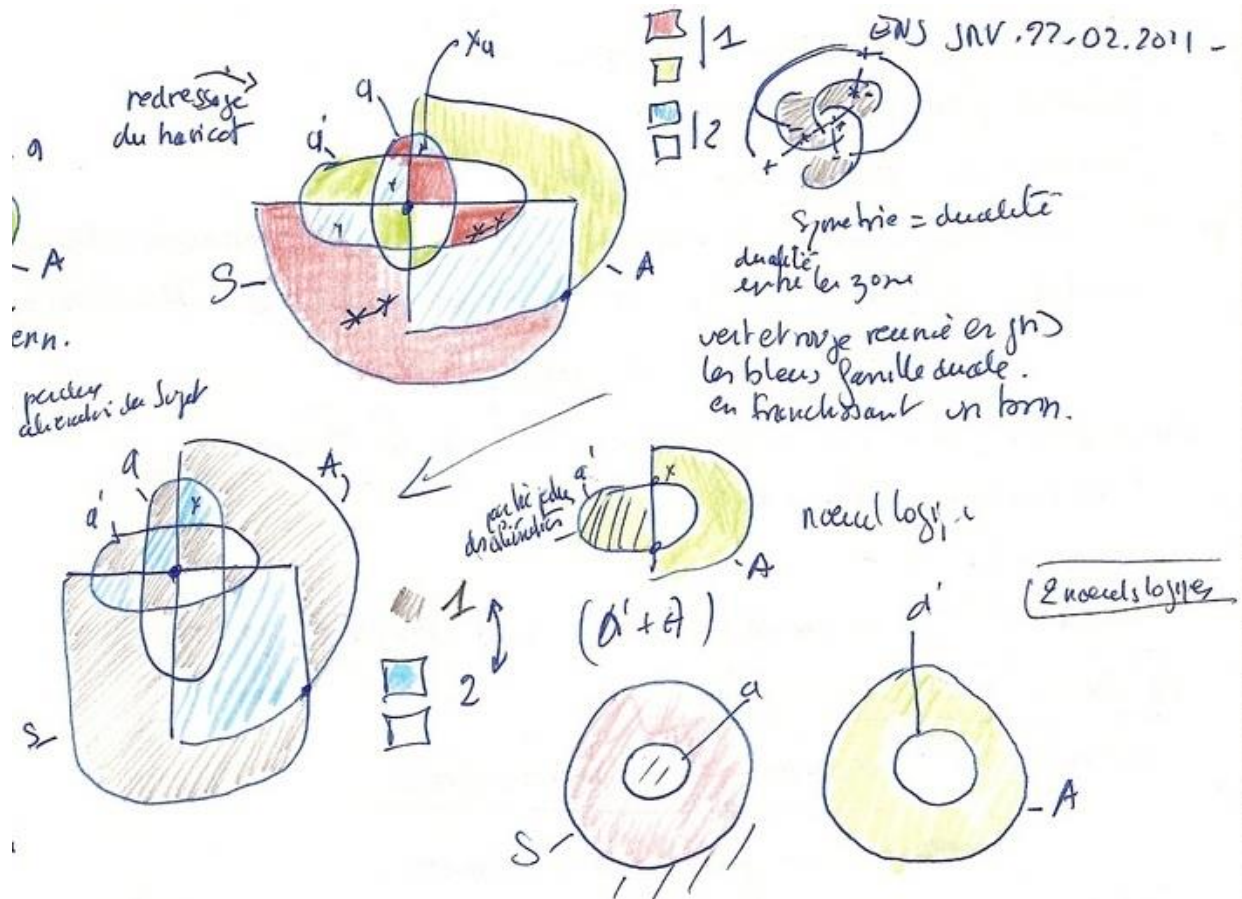 ENS JNV. 22.02.2011 -
redressage
du haricot
Xa
a
a'
1
2
a
A
S
A
Symetrie = dualité
dualité
entre les zone
vert et rouge reunie en gris
les bleus famille duale.
en franchissant un born.
enn.
perdue
du Sujet
a
A
a'
a'
x
noeud logi
A
2 noeuds logiques
1
2
(a' + A)
a
a'
S
S
A